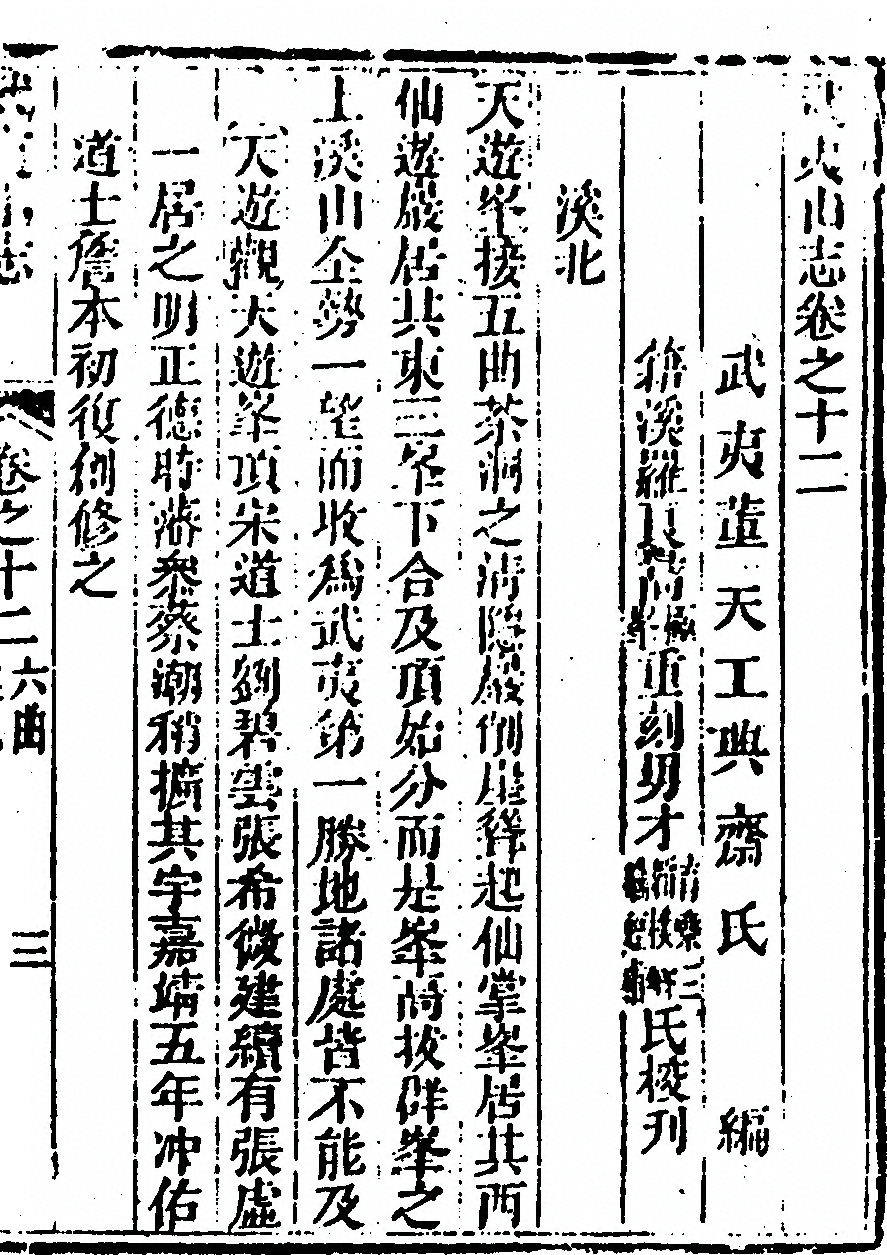 武夷山志卷之十二
武夷董天工典齋氏 編
籍溪羅良嵩重刻男才氏梭刊
溪北
天遊峯接五曲茶洞之清隱巖側崖聳起仙掌峯居其西
仙遊巖居其東三峯下合及頂始分而是峯高拔群峯之
上溪山全勢一望而收為武夷第一勝地諸處皆不能及
天遊觀天遊峯頂宋道士劉碧雲張希微建續有張虛
一居之明正德時藩叅蔡潮稍擴其宇嘉靖五年冲佑
道士詹本初復創修之
武夷山志 卷之十二 六曲 三